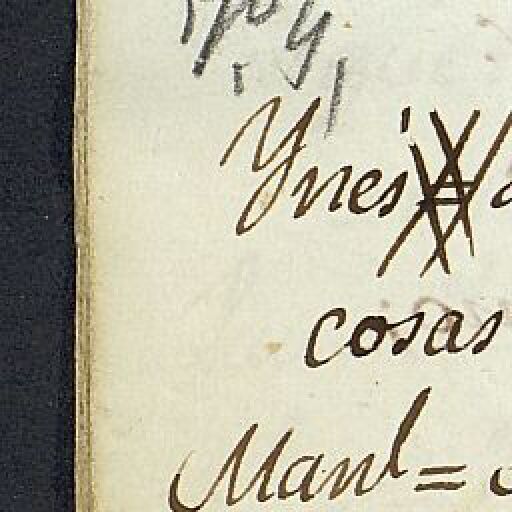 Ynes
cosas
Manl =